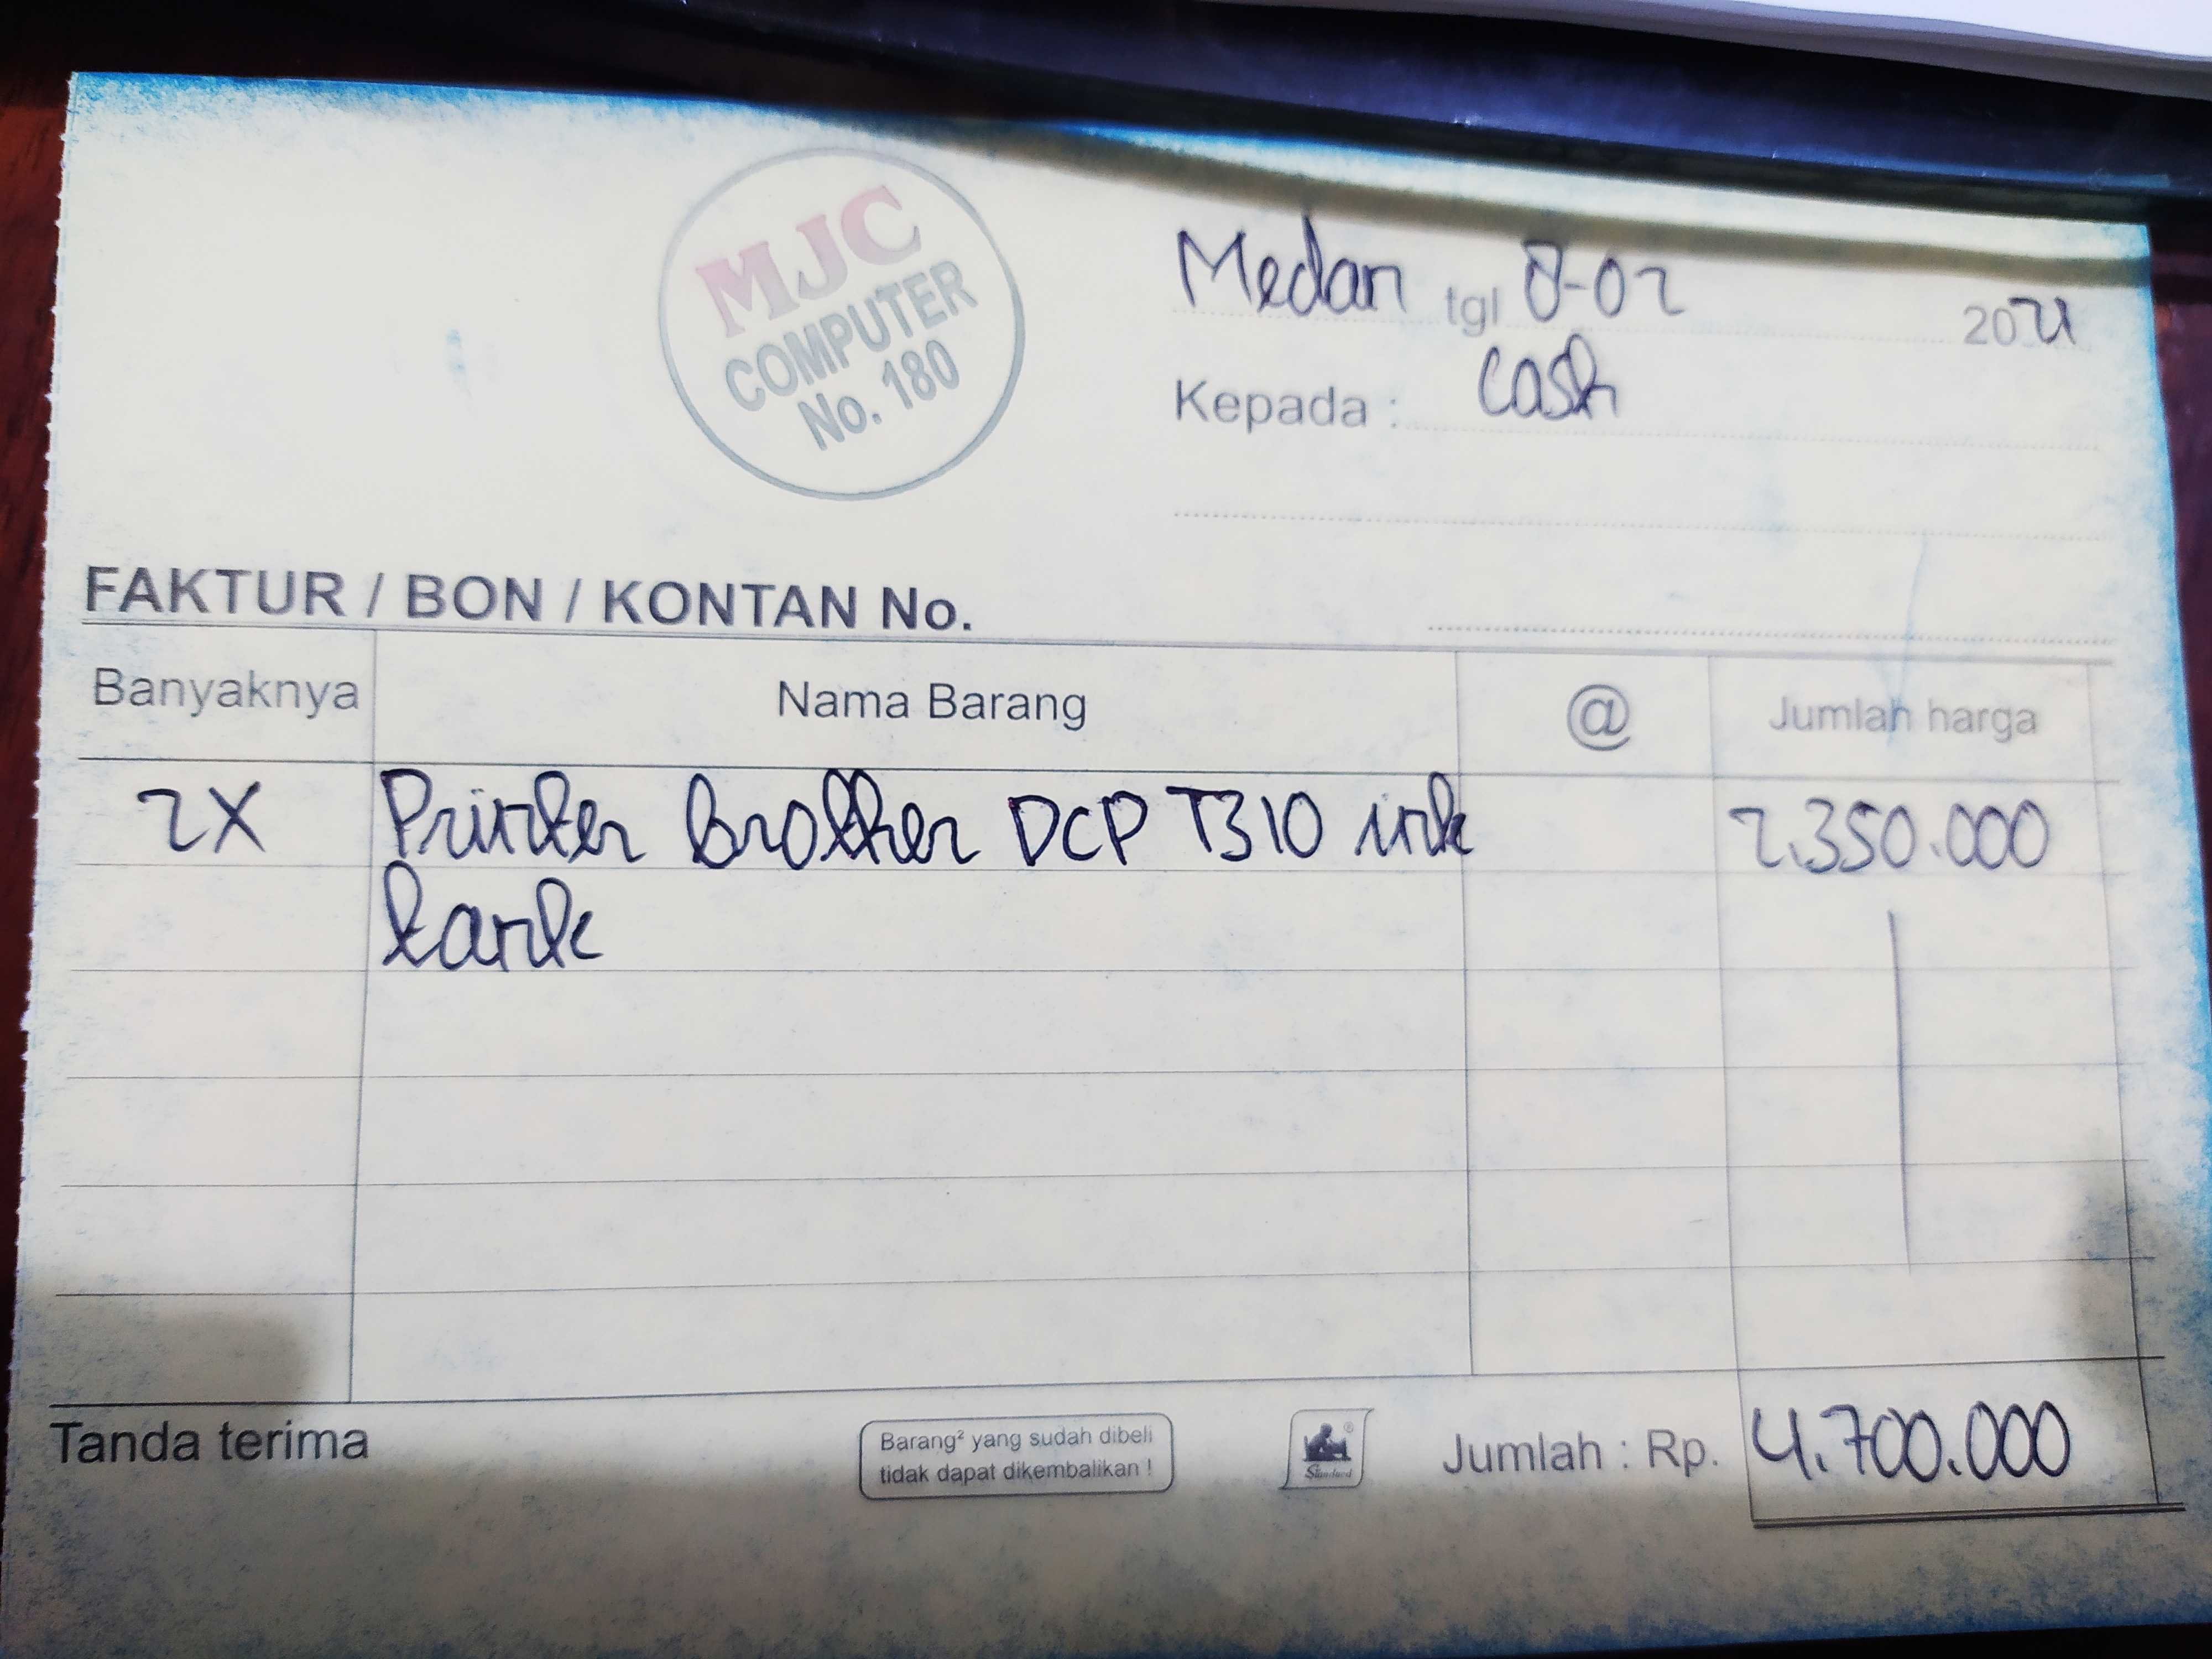 MJC
COMPUTER
No. 180
Medan tgl 8-02 2021
Kepada : Cash
FAKTUR / BON / KONTAN No.
Banyaknya Nama Barang @ Jumlah harga
2X Printer Brother DCP T310 ink 2.350.000
tank
Tanda terima
Barang² yang sudah dibeli
tidak dapat dikembalikan !
Standard
®
Jumlah : Rp. 4.700.000